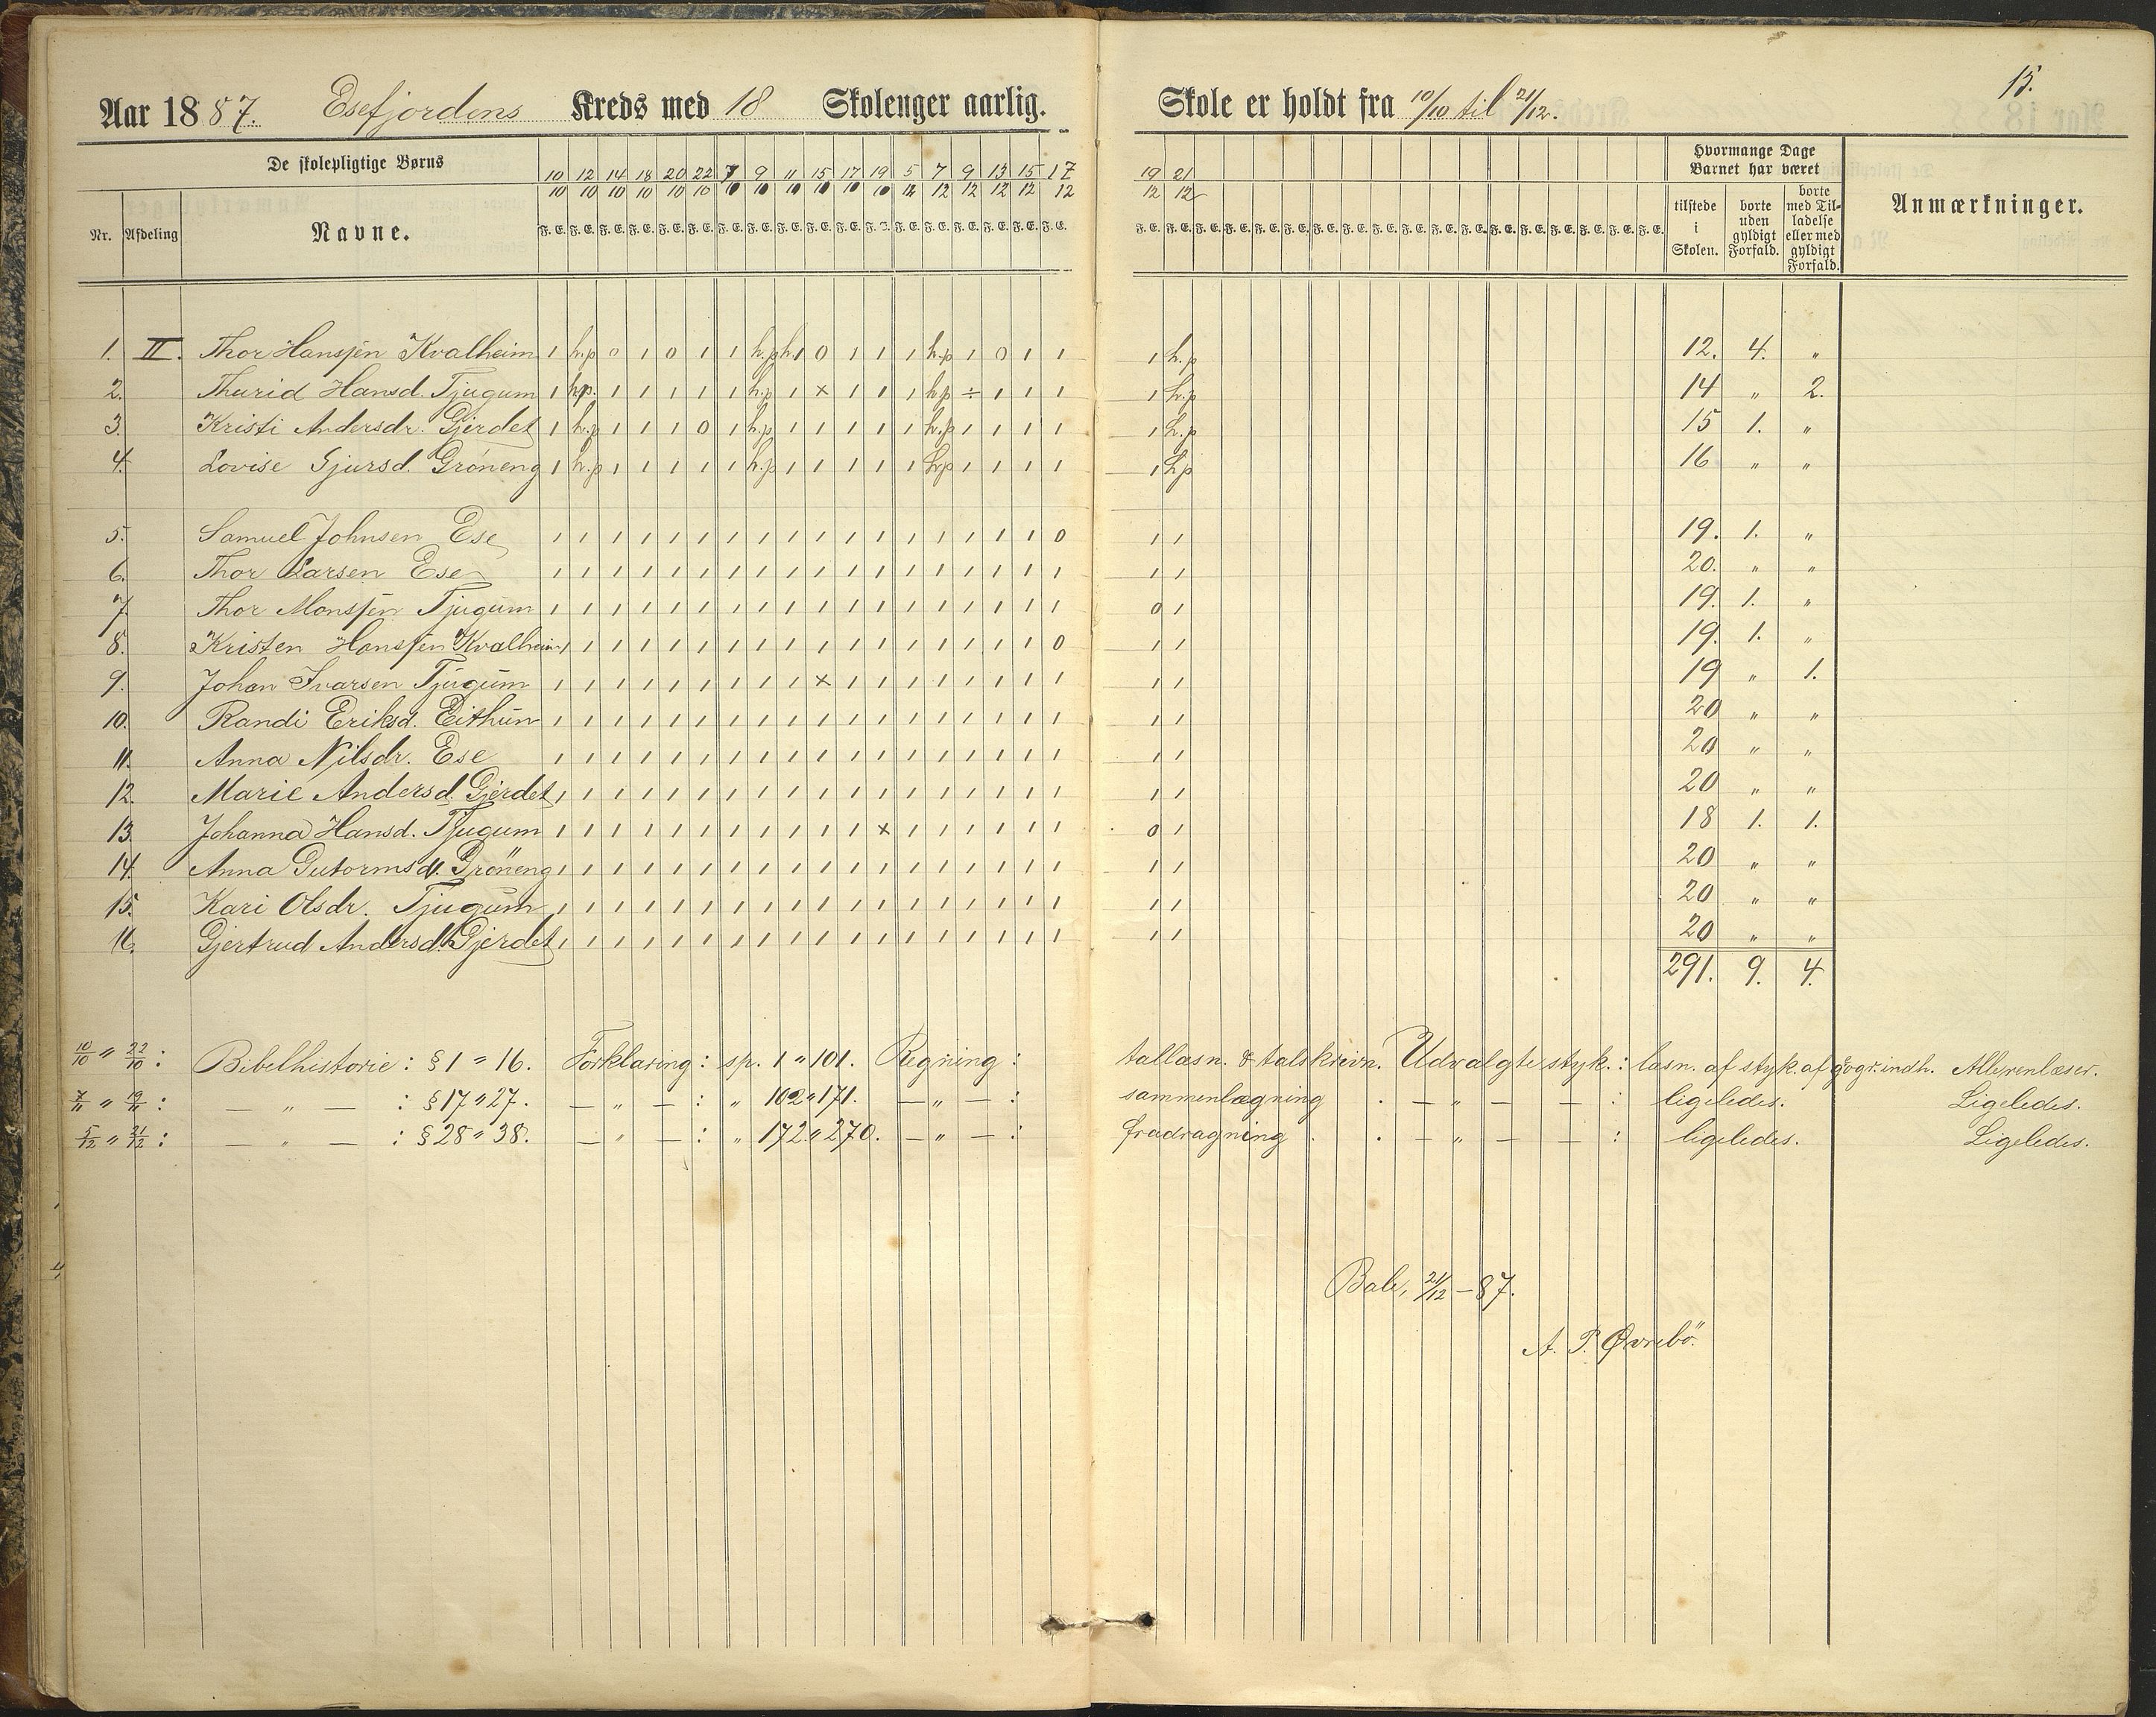 Aar 1887. Esefjordens Kreds med 18 Skoleuger aarlig. Skole er holdt fra 10/10 til 21/12. 15.
De skolepligtige Børns
Nr. Afdeling Navne.
10 12 14 18 20 22 7 9 11 15 17 19 5 7 9 13 15 17 19 21
10 10 10 10 10 10 10 10 10 10 10 10 12 12 12 12 12 12 12 12
F. E. F. E. F. E. F. E. F. E. F. E. F. E. F. E. F. E. F. E. F. E. F. E. F. E. F. E. F. E. F. E. F. E. F. E.
F. E. F. E. F. E. F. E. F. E. F. E. F. E. F. E. F. E. F. E. F. E. F. E. F. E. F. E. F. E. F. E. F. E. F. E.
Hvormange Dage Barnet har været
tilstede i Skolen.
borte uden gyldigt Forfald.
borte med Tilladelse eller med gyldigt Forfald.
Anmærkninger.
1. II. Thor Hanssen Kvalheim 1 h.p 0 1 0 1 1 h.p h.1 0 1 1 1 h.p 1 0 1 1 1 h.p 12. 4. "
2. Thurid Hansd. Tjugum 1 h.p. 1 1 1 1 1 h.p 1 × 1 1 1 h.p ÷ 1 1 1 1 h.p 14 " 2.
3. Kristi Andersdr. Gjerdet 1 h.p 1 1 1 0 1 h.p 1 1 1 1 1 h.p 1 1 1 1 1 h.p 15 1. "
4. Lovise Gjursd. Gröneng 1 h.p 1 1 1 1 1 h.p 1 1 1 1 1 h.p 1 1 1 1 1 h.p 16 " "
5. Samuel Johnsen Ese 1 1 1 1 1 1 1 1 1 1 1 1 1 1 1 1 1 0 1 1 19. 1. "
6. Thor Larsen Ese 1 1 1 1 1 1 1 1 1 1 1 1 1 1 1 1 1 1 1 1 20. " "
7. Thor Monssen Tjugum 1 1 1 1 1 1 1 1 1 1 1 1 1 1 1 1 1 1 0 1 19. 1. "
8. Kristen Hanssen Kvalheim 1 1 1 1 1 1 1 1 1 1 1 1 1 1 1 1 1 0 1 1 19. 1. "
9. Johan Ivarsen Tjugum 1 1 1 1 1 1 1 1 1 × 1 1 1 1 1 1 1 1 1 1 19 " 1.
10. Randi Eriksd. Eithun 1 1 1 1 1 1 1 1 1 1 1 1 1 1 1 1 1 1 1 1 20 " "
11. Anna Nilsdr. Ese 1 1 1 1 1 1 1 1 1 1 1 1 1 1 1 1 1 1 1 1 20 " "
12. Marie Andersd. Gjerdet 1 1 1 1 1 1 1 1 1 1 1 1 1 1 1 1 1 1 1 1 20 " "
13. Johanna Hansd. Tjugum 1 1 1 1 1 1 1 1 1 1 1 × 1 1 1 1 1 1 0 1 18 1. 1.
14. Anna Gutormsd. Gröneng 1 1 1 1 1 1 1 1 1 1 1 1 1 1 1 1 1 1 1 1 20 " "
15. Kari Olsdr. Tjugum 1 1 1 1 1 1 1 1 1 1 1 1 1 1 1 1 1 1 1 1 20 " "
16. Gjertrud Andersd. Gjerdet 1 1 1 1 1 1 1 1 1 1 1 1 1 1 1 1 1 1 1 1 20 " "
291. 9. 4.
10/10 " 22/10 : Bibelhistorie : § 1 " 16. Forklaring : sp. 1 " 101. Regning : tallæsn. & talskrivn. Udvalgte styk. : læsn. af styk. af indh. Allerenlæser.
7/11 " 19/11 : — " — : § 17 " 27. — " — : " 102 " 171. — " — : sammenlægning . — " — — : ligeledes. Ligeledes.
5/12 " 21/12 : — " — : § 28 " 38. — " — : " 172 " 270. — " — : fradragning . — " — — : ligeledes. Ligeledes.
Bale, 21/12 – 87.
A. P. Øvrebö.